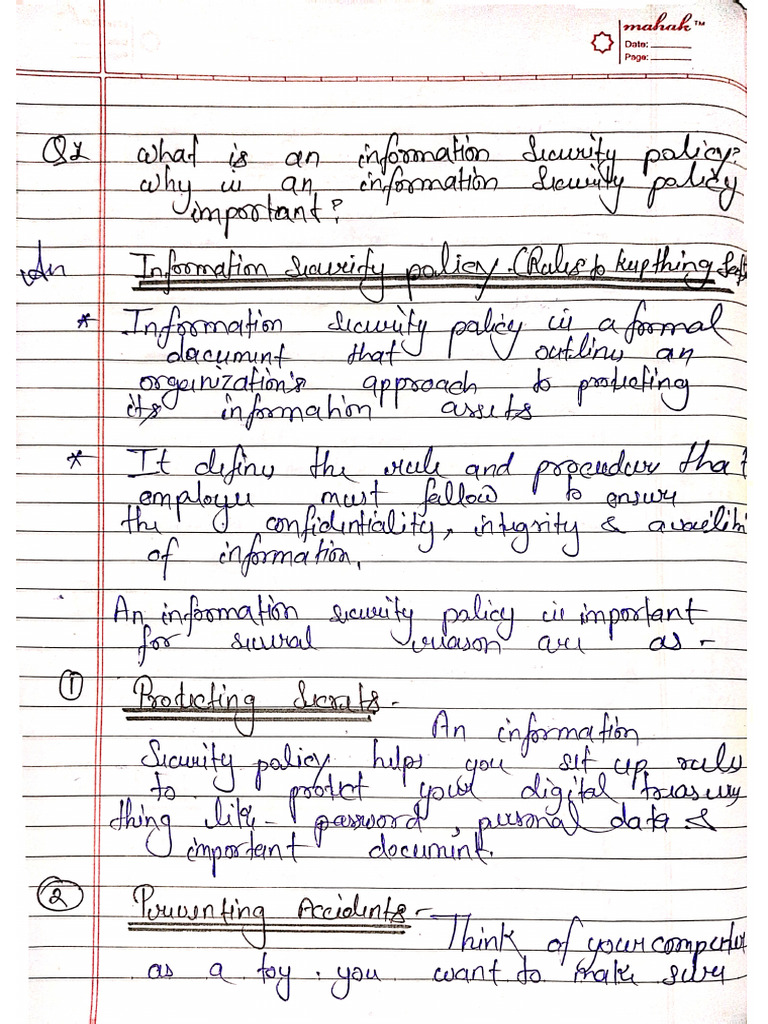 mahak™
Date:
Page:
Q1 What is an information Security policy?
Why is an information Security policy
important?
An Information Security policy - (Rules to keep thing Safe
* Information security policy is a formal
document that outlines an
organization's approach to protecting
its information assets
* It defines the rule and procedur that
employee must follow to ensure
the confidentiality, integrity & availibi
of information.
An information security policy is important
for several reason are as -
① Protecting Secrats -
An information
Security policy helps you set up rules
to protect your digital treasury
thing like - password, personal data &
important document.
② Preventing Accidents -
Think of your computer
as a toy. you want to make sure